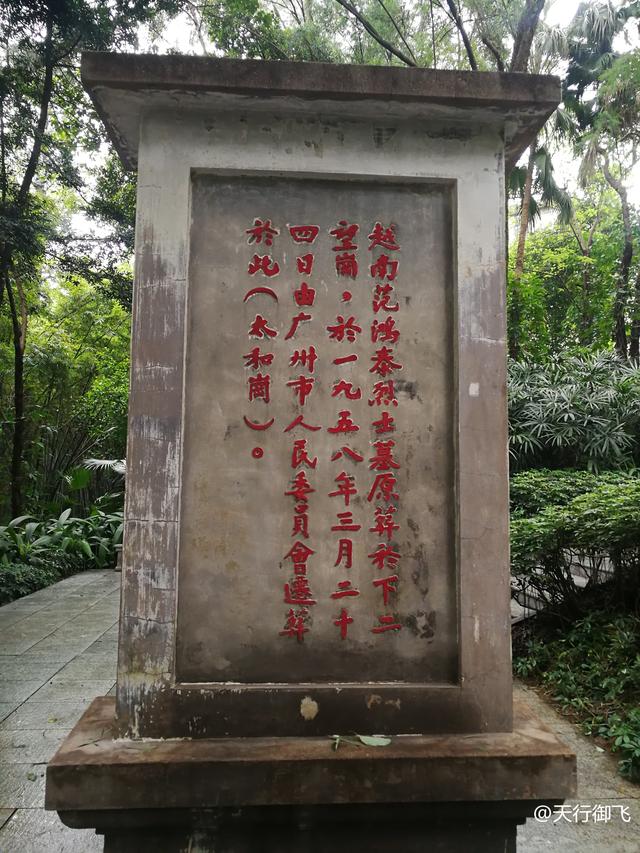 越南范鴻泰烈士墓原葬於下二
望崗，於一九五八年三月二十
四日由广州市人民委員會遷葬
於此（太和崗）。
@天行御飞